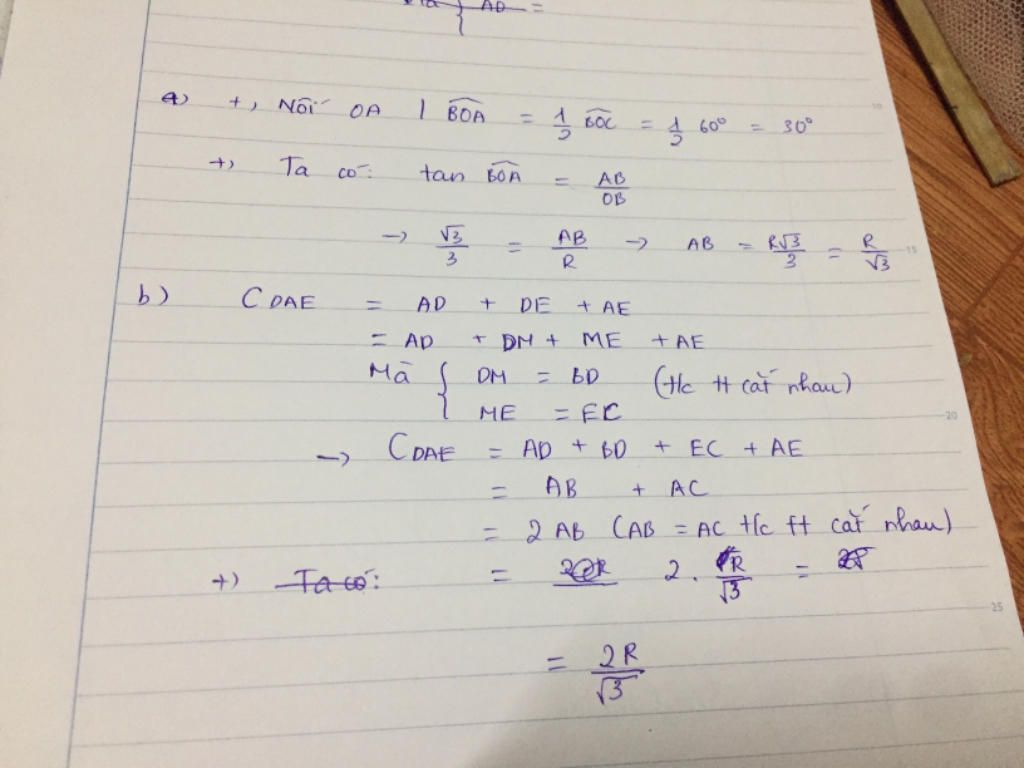 { AD =
a) +, Nối OA | BOA = 1/2 BOC = 1/2 60° = 30°
+, Ta có: tan BOA = AB/OB
→ √3/3 = AB/R → AB = R√3/3 = R/√3
b) C DAE = AD + DE + AE
= AD + DM + ME + AE
Mà { DM = BD (t/c tt cắt nhau)
ME = EC
→ C DAE = AD + BD + EC + AE
= AB + AC
= 2 AB (AB = AC t/c tt cắt nhau)
+) Ta có: = 2. R/√3 =
= 2R/√3